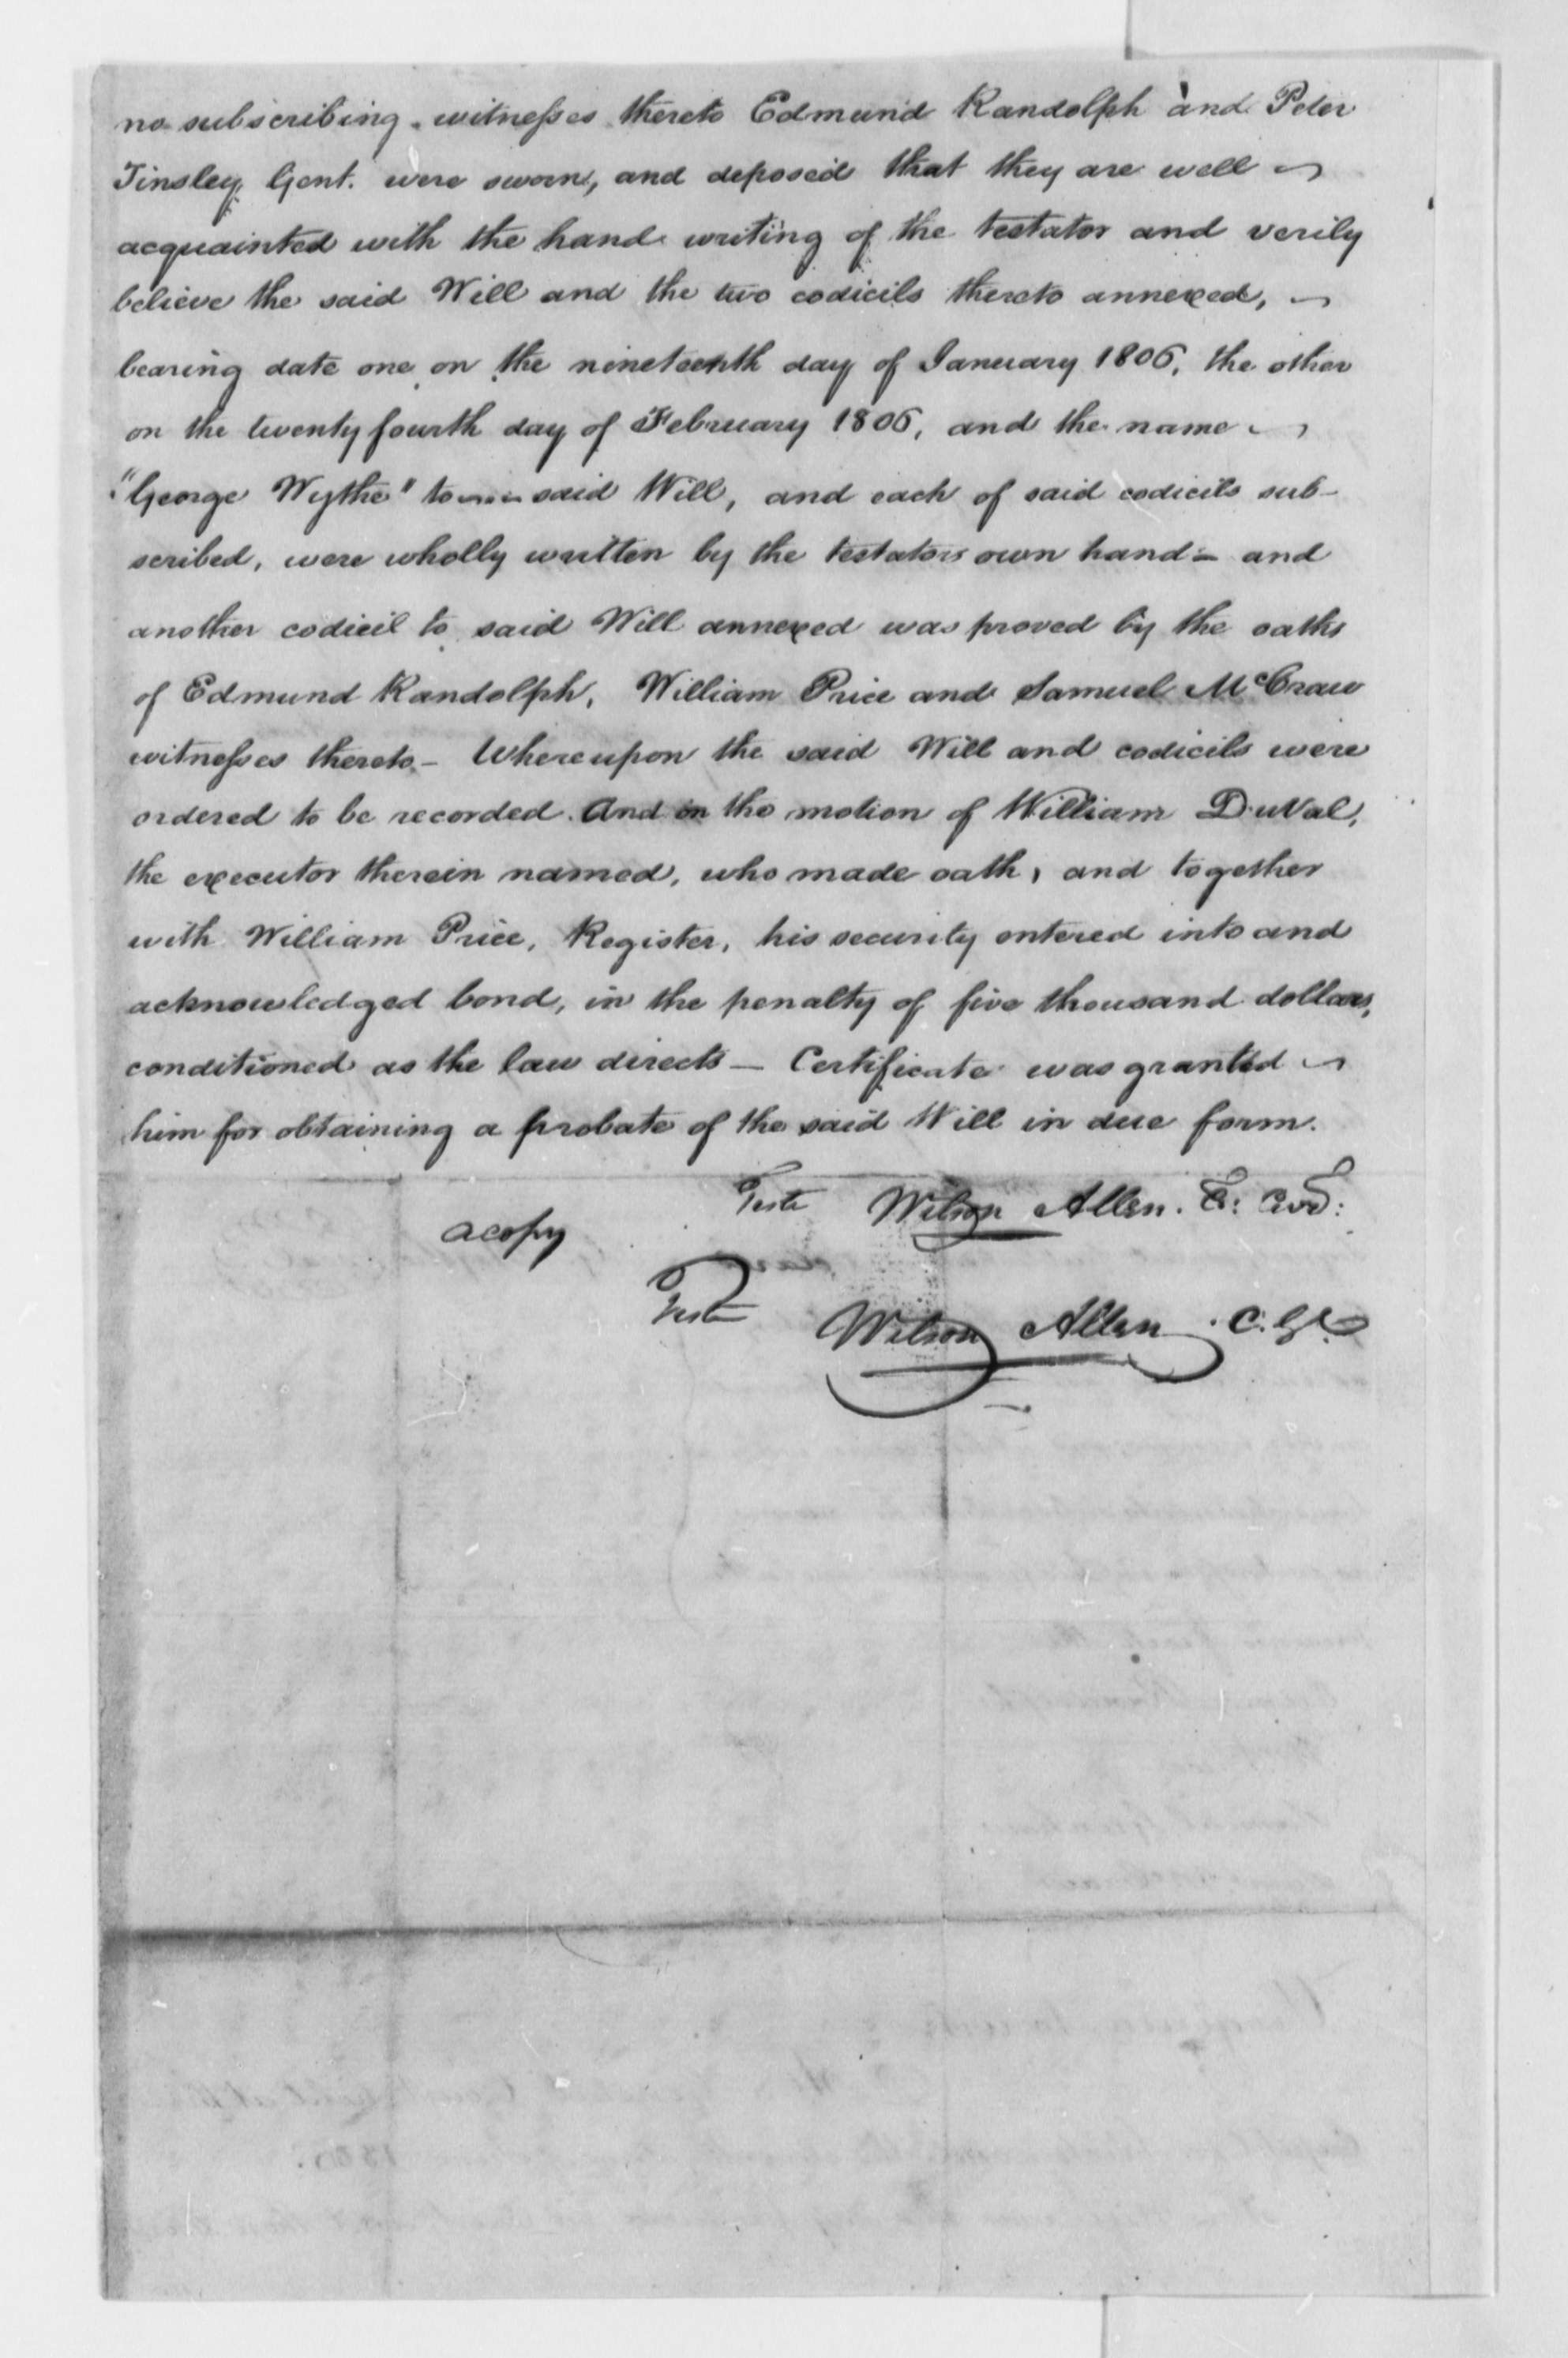 no subscribing witnesses thereto Edmund Randolph and Peter
Tinsley, Gent. were sworn, and deposed that they are well
acquainted with the hand writing of the testator and verily
believe the said Will and the two codicils thereto annexed,
bearing date one on the nineteenth day of January 1806, the other
on the twenty fourth day of February 1806, and the name
"George Wythe" to said Will, and each of said codicils sub-
scribed, were wholly written by the testators own hand - and
another codicil to said Will annexed was proved by the oaths
of Edmund Randolph, William Price and Samuel McCraw
witnesses thereto - Whereupon the said Will and codicils were
ordered to be recorded. And on the motion of William DuVal,
the executor therein named, who made oath, and together
with William Price, Register, his security entered into and
acknowledged bond, in the penalty of five thousand dollars,
conditioned as the law directs - Certificate was granted
him for obtaining a probate of the said Will in due form.
Teste Wilson Allen.
a copy
Teste
Wilson Allen. C.